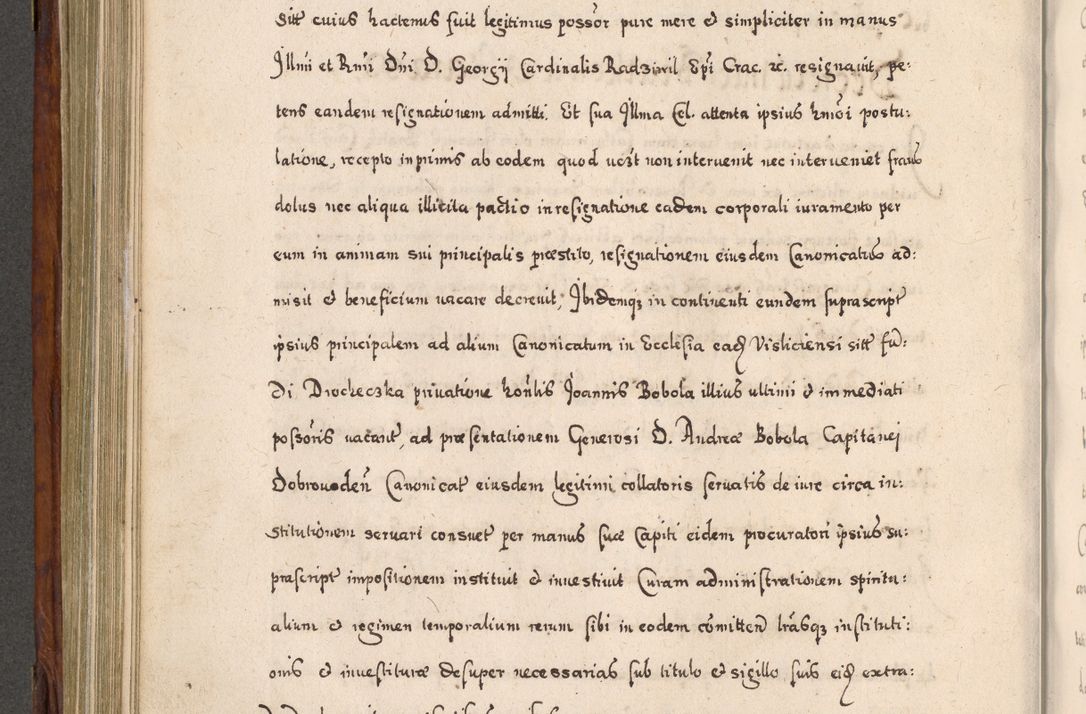 sitt cuius hactenus fuit legitimus possōr pure mere et simpliciter in manus
Illmi et Rmi Dni D. Georgij Cardinalis Radziwil Epi Crac. rc. resignavit, pe:
tens eandem resignationem admitti. Et sua Illma Cel. attenta ipsius hmōi postu:
latione, recepto inprimis ab eodem quod non intervenit nec interveniet fraus
dolus nec aliqua illicita pactio in resignatione eadem corporali iuramento per
eum in animam sui principalis præstito, resignationem eiusdem Canonicatus ad:
misit et beneficium vacare decrevit, Ibidemq; in continenti eundem suprascript
ipsius principalem ad alium Canonicatum in Ecclesia ead Visliciensi sitt fun:
di Drocheczka privatione honlis Joannis Bobola illius ultimi et immediati
possōris vacant, ad præsentationem Generosi D. Andreæ Bobola Capitanei
Dobrovoden Canonicat eiusdem legitimi collatoris servatis de iure circa in:
stitutionem servari consuet per manus suæ Capiti eidem procuratori ipsius su:
prascript impositionem instituit et investivit Curam administrationem spiritu:
alium et regimen temporalium rerum sibi in eodem cōmitten lrāsq; instituti:
onis et investituræ desuper necessarias sub titulo et sigillo suis eid extra: